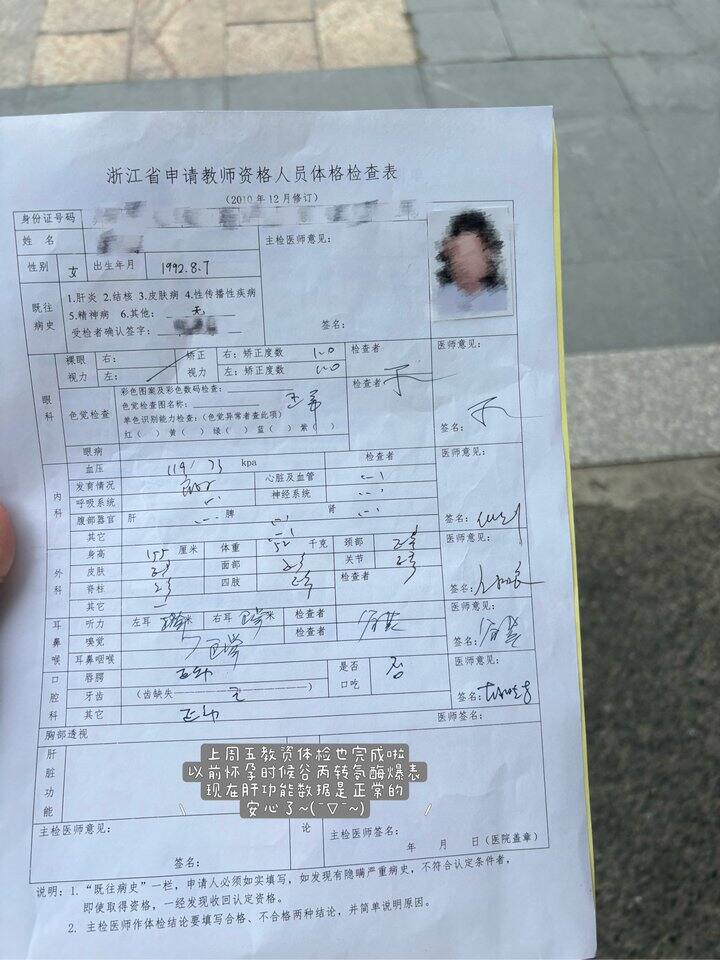 浙江省申请教师资格人员体格检查表
（2010年12月修订）
身份证号码
姓 名
主检医师意见：
性别 女 出生年月 1992.8.7
既往病史
1.肝炎 2.结核 3.皮肤病 4.性传播性疾病
5.精神病 6.其他： 无
受检者确认签字：
签名：
眼科
裸眼视力 右： 左：
矫正视力 右：矫正度数 1.0 左：矫正度数 1.0
检查者
医师意见：
色觉检查
彩色图案及彩色数码检查：
色觉检查图名称：
单色识别能力检查：（色觉异常者查此项）
红（ ）黄（ ）绿（ ）蓝（ ）紫（ ）
检查者
签名：
眼病
内科
血压 119/73 kpa 检查者
医师意见：
发育情况 心脏及血管
呼吸系统 神经系统
腹部器官 肝 脾 肾
签名：
其它
外科
身高 155 厘米 体重 52 千克 颈部
医师意见：
皮肤 面部 关节
脊柱 四肢 检查者
签名：
其它
耳鼻喉
听力 左耳 米 右耳 米 检查者
医师意见：
嗅觉 检查者
签名：
耳鼻咽喉
口腔科
唇腭 正常 是否口吃 否
医师意见：
牙齿 （齿缺失 无 ）
签名：
其它 正常
医师签名：
胸部透视
肝脏功能
上周五教资体检也完成啦
以前怀孕时候谷丙转氨酶爆表
现在肝功能数据是正常的
安心了~(ˉ▽ˉ~)
主检医师意见：
签名：
论
主检医师签名：
年 月 日（医院盖章）
说明：1.“既往病史”一栏，申请人必须如实填写，如发现有隐瞒严重病史，不符合认定条件者，
即使取得资格，一经发现收回认定资格。
2. 主检医师作体检结论要填写合格、不合格两种结论，并简单说明原因。